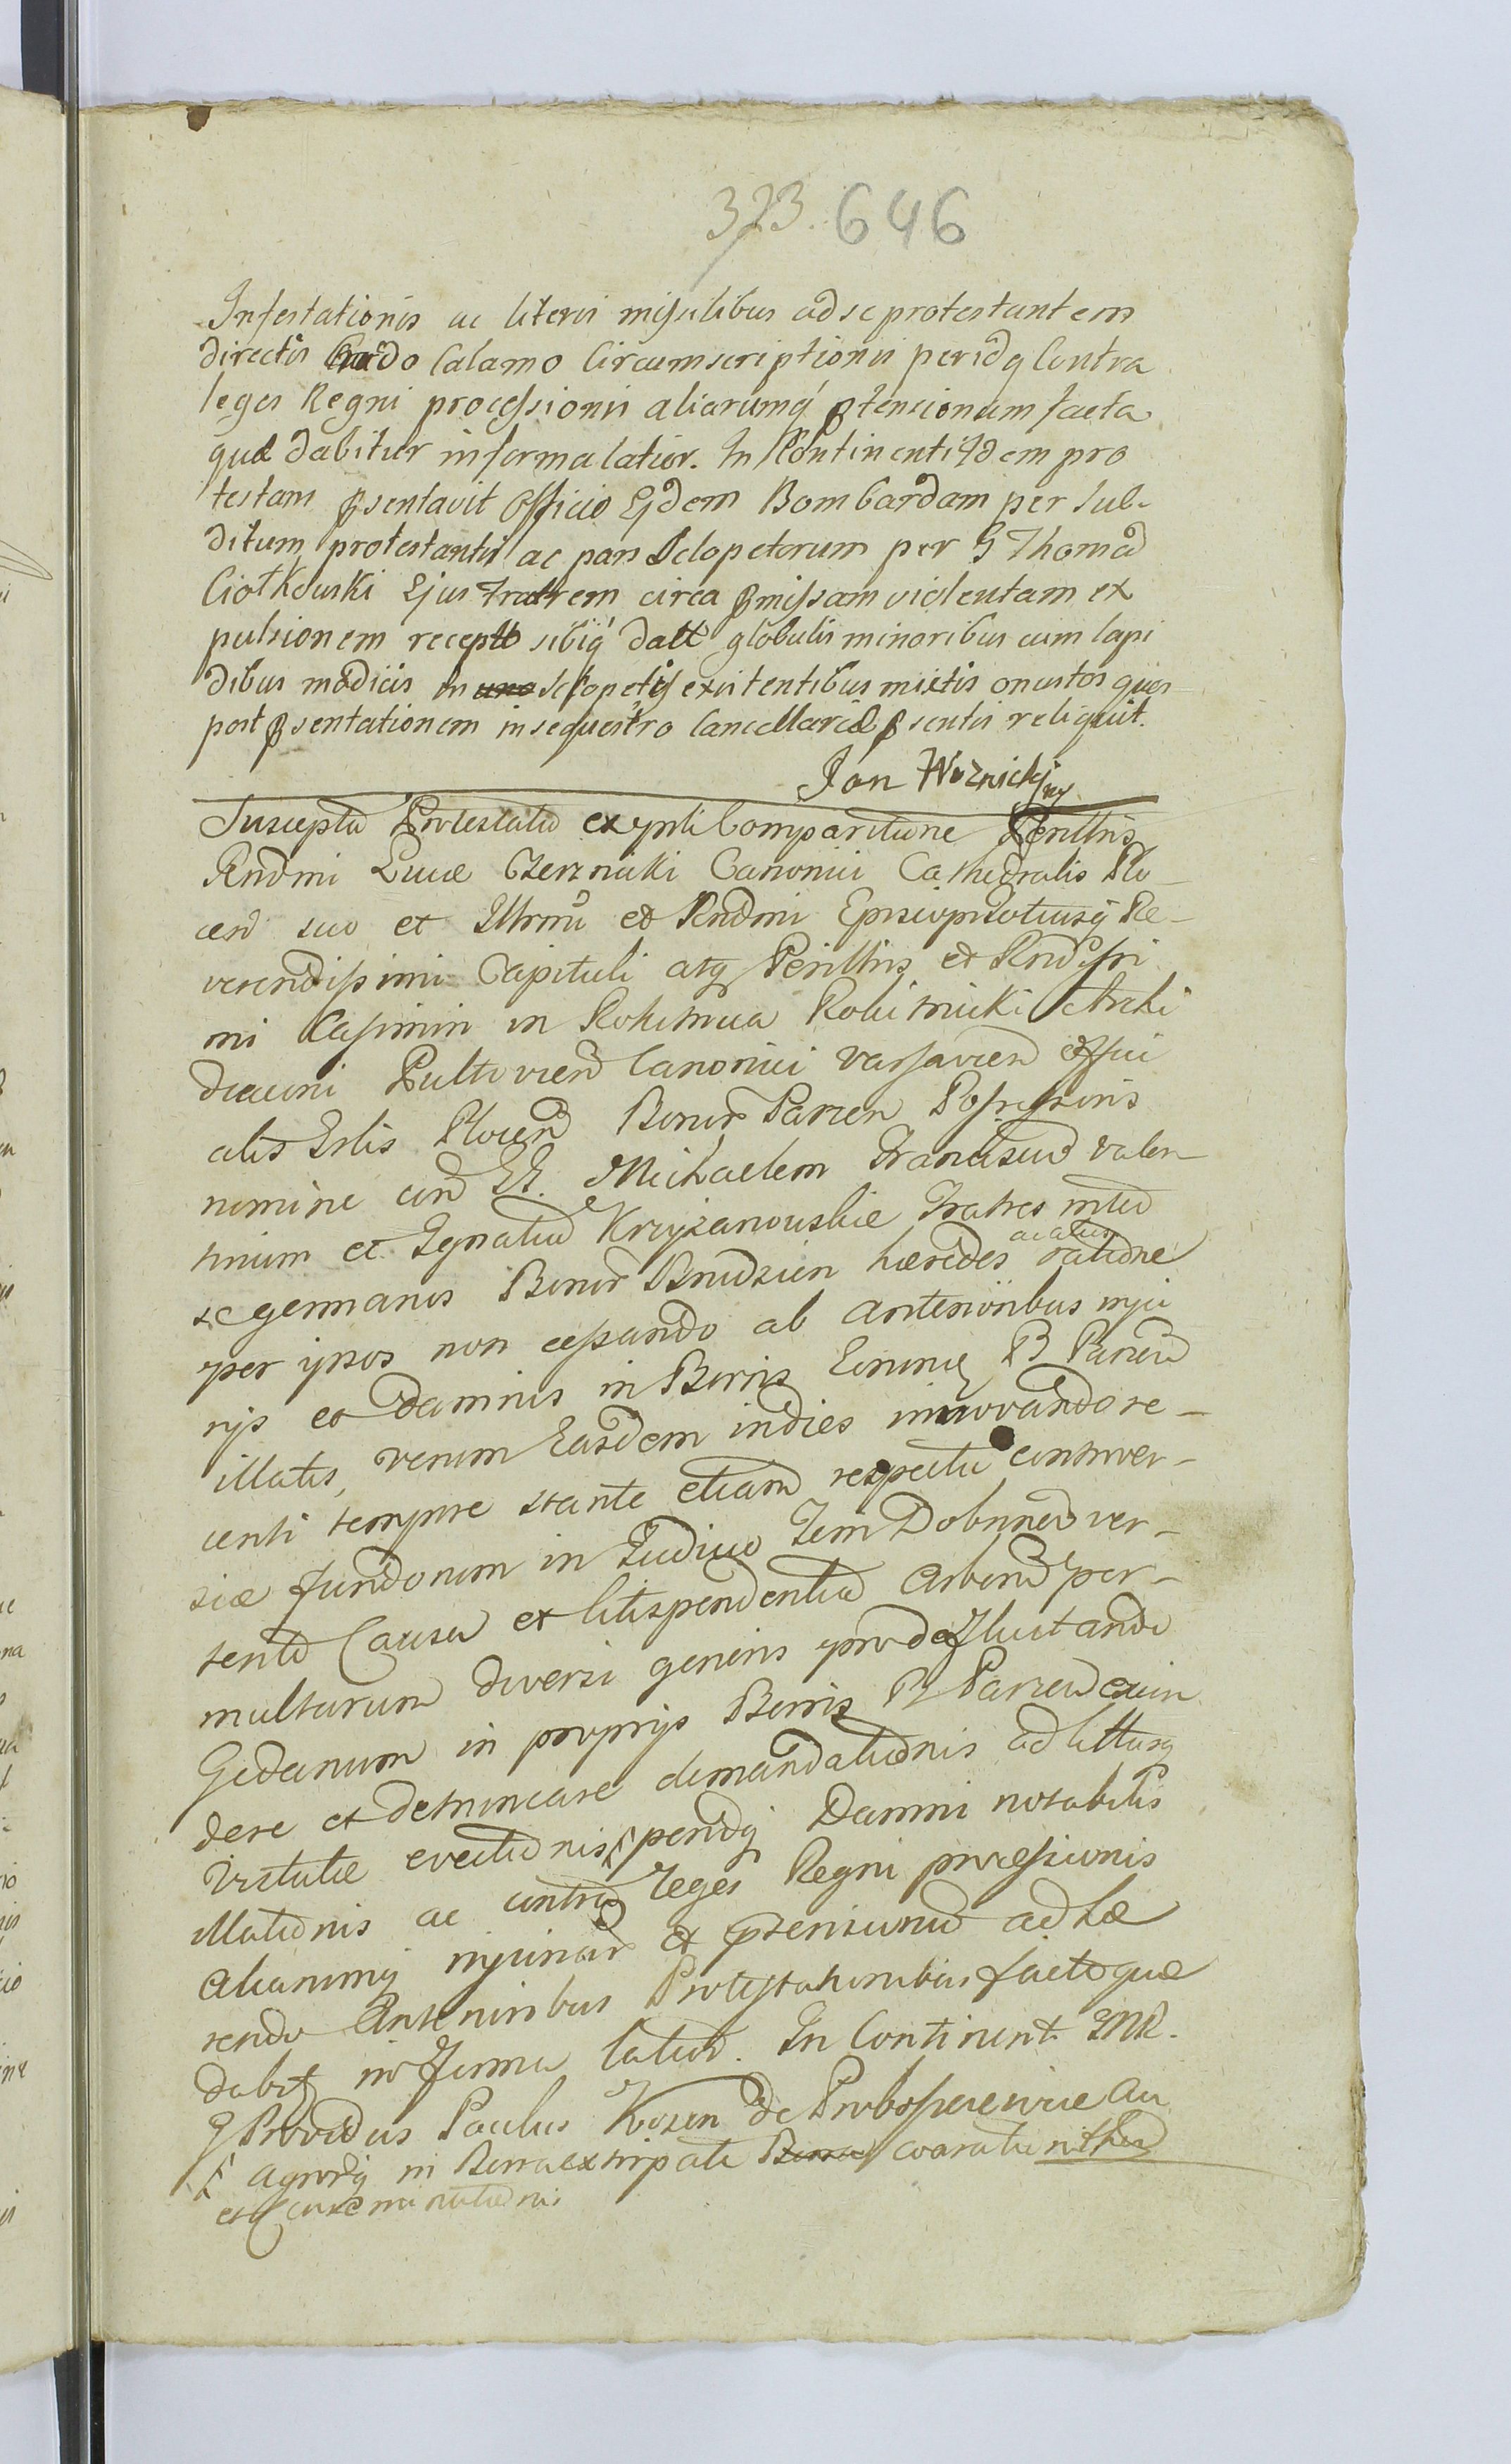 373. 646
Infestationis ac literis missilibus ad se protestantem
directis crudo Calamo Circumscriptionis peridq Contra
leges Regni processionis aliarumq ptensionum facta
quæ dabitur in forma latior. In Continenti Idem pro
testans psentavit Officio Ejdem Bombardam per sub-
ditum protestantis ac pars Sclopetorum per G Thomã
Ciołkowski Ejus fratrem circa pmissam violentam ex
pulsionem recept sibiq datt globulis minoribus cum lapi
dibus modicis in uno Sclopetis existentibus mixtis onustos quos
post psentationem in sequestro Cancellariæ psentis reliquit.
Jan Woznicki
Suscepta Protestatio ex Comparitione Perillris
Rndmi Lucæ Czerznicki Canonici Cathedralis Plo
cen suo et Illrmi et Rndmi Episcopi Totiusq Re-
verendissimi Capituli atq Perillris et Rndissi
mi Casimiri in Rokitnica Rokitnicki Archi
diaconi Pultovien Canonici Varsavien Offici
alis Glis Plocen Bonor Parzen Possessoris
nomine con GG. Michaelem Franciscu Valen-
tinum et Ignatiu Krzyzanouskie Fratres inter
se germanos Bonor Brudzien hæredes ratione
ac alias
per ipsos non cessando ab anterioribus inju
rijs et damnis in Bonis B Parzen
illatis, verum Easdem indies innovando re-
centi tempore stante etiam respectu controver-
siæ fundorum in Judicio Tern Dobrinen ver-
tente Causa et litispendentia Arborum per-
multarum diversi generis pro defluitando
Gedanum in proprijs Bonis B Parzen excin
dere et detruncare demandationis ad littusq
Vistulæ evectionis peridq Damni notabilis
illationis ac contra leges Regni processionis
aliarumq injuriar et ptensionu adhæ
rendo Anterioribus Protestationibus facta quæ
dabitur in forma latior. In Continenti
Providus Paulus Kozen de Proboszczewice au
Agrorq in Bona extirpati Bona coaratu